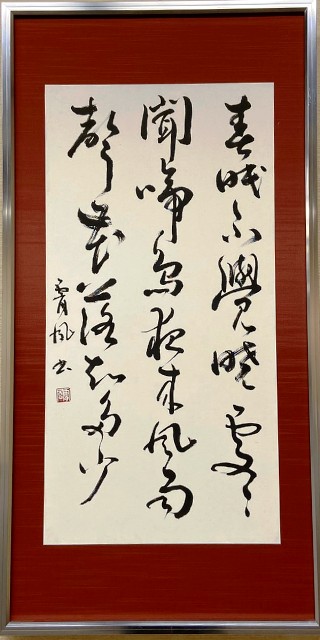 春眠不覺曉處々
聞啼鳥夜来風雨
聲花落知多少
霄風書